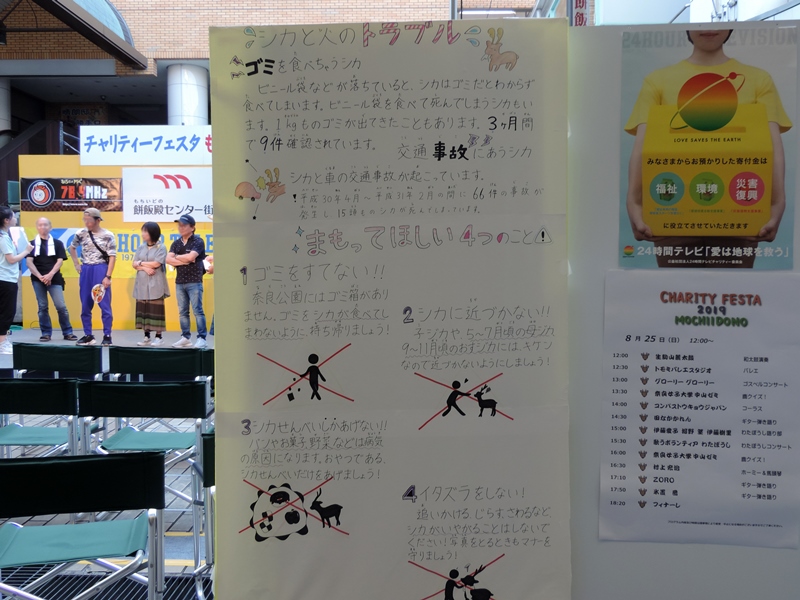 シカと人のトラブル
ゴミを食べちゃうシカ
ビニール袋などが落ちていると、シカはゴミだとわからず
食べてしまいます。ビニール袋を食べて死んでしまうシカもい
ます。1kgものゴミが出てきたこともあります。3ヶ月間
で9件確認されています。
交通事故にあうシカ
シカと車の交通事故が起こっています。
平成30年4月〜平成31年2月の間に66件の事故が
発生し、15頭ものシカが死んでしまいました。
まもってほしい4つのこと
1 ゴミをすてない!!
奈良公園にはゴミ箱があり
ません。ゴミをシカが食べてし
まわないように、持ち帰りましょう!
2 シカに近づかない!!
子ジカや、5~7月頃の母ジカ
9~11月頃のおすジカには、キケン
なので近づかないようにしましょう!
3 シカせんべいしかあげない!!
パンやお菓子、野菜などは病気
の原因になります。おやつである、
シカせんべいだけをあげましょう!
4 イタズラをしない!
追いかける、じらす、さわるなど
シカがいやがることはしないで
ください!写真をとるときもマナーを
守りましょう!
チャリティーフェスタ も
78.4MHz
もちいどの
餅飯殿センター街
24HOUR TELEVISION
LOVE SAVES THE EARTH
みなさまからお預かりした寄付金は
福祉
環境
災害
復興
に役立てさせていただきます
24時間テレビ「愛は地球を救う」
CHARITY FESTA
2019
MOCHIIDONO
8月25日(日) 12:00〜
12:00 生駒山麓太鼓 和太鼓演奏
12:30 トモモバレエスタジオ バレエ
13:00 グローリー グローリー ゴスペルコンサート
13:30 奈良女子大学 中山ゼミ 鹿クイズ!
14:00 コンパストウキョウジャパン コーラス
14:30 ギター弾き語り
15:00
15:30 わたぼうしコンサート
16:00 奈良女子大学 中山ゼミ 鹿クイズ!
16:30 村上
17:10 ZORO ギター弾き語り
17:50 ギター弾き語り
18:20 フィナーレ